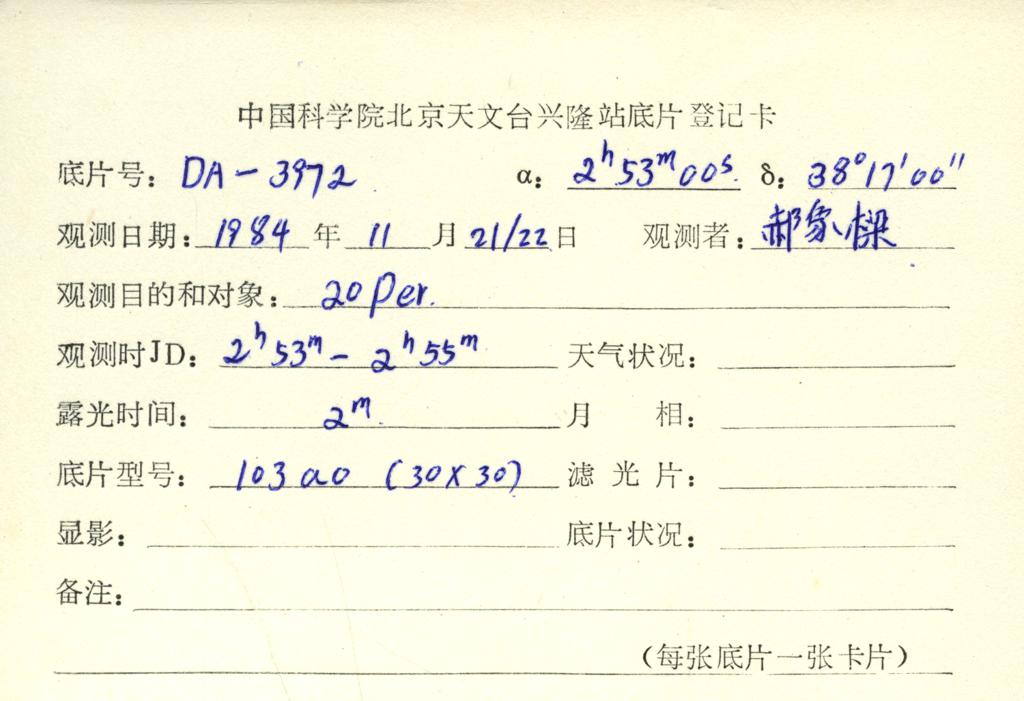 中国科学院北京天文台兴隆站底片登记卡
底片号: DA-3972 α: 2ʰ53ᵐ00ˢ. δ: 38°17′00″
观测日期: 1984 年 11 月 21/22 日 观测者: 郝象樑
观测目的和对象: 20 Per.
观测时JD: 2ʰ53ᵐ - 2ʰ55ᵐ 天气状况:
露光时间: 2ᵐ. 月 相:
底片型号: 103aO (30×30) 滤 光 片:
显影: 底片状况:
备注:
(每张底片一张卡片)